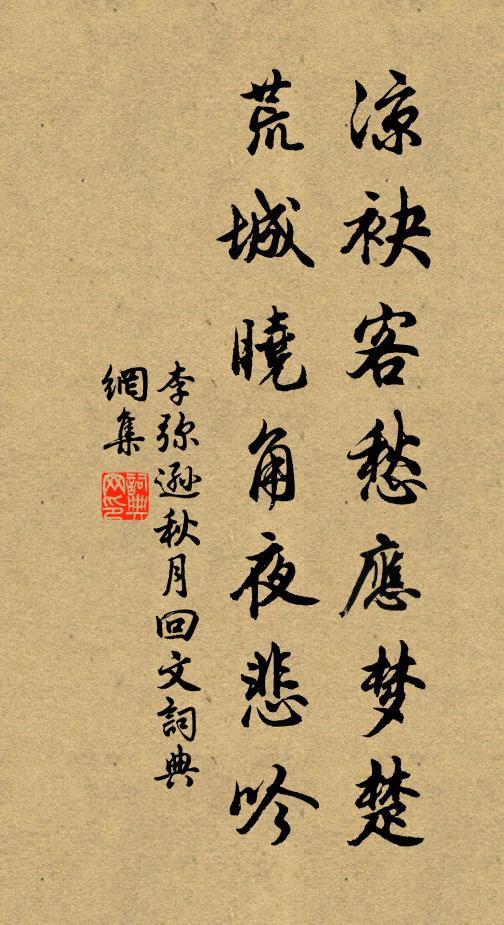 凉袂客愁應梦楚
荒城曉角夜悲吟
李弥遜秋月回文詞典
網集
詞典
网印